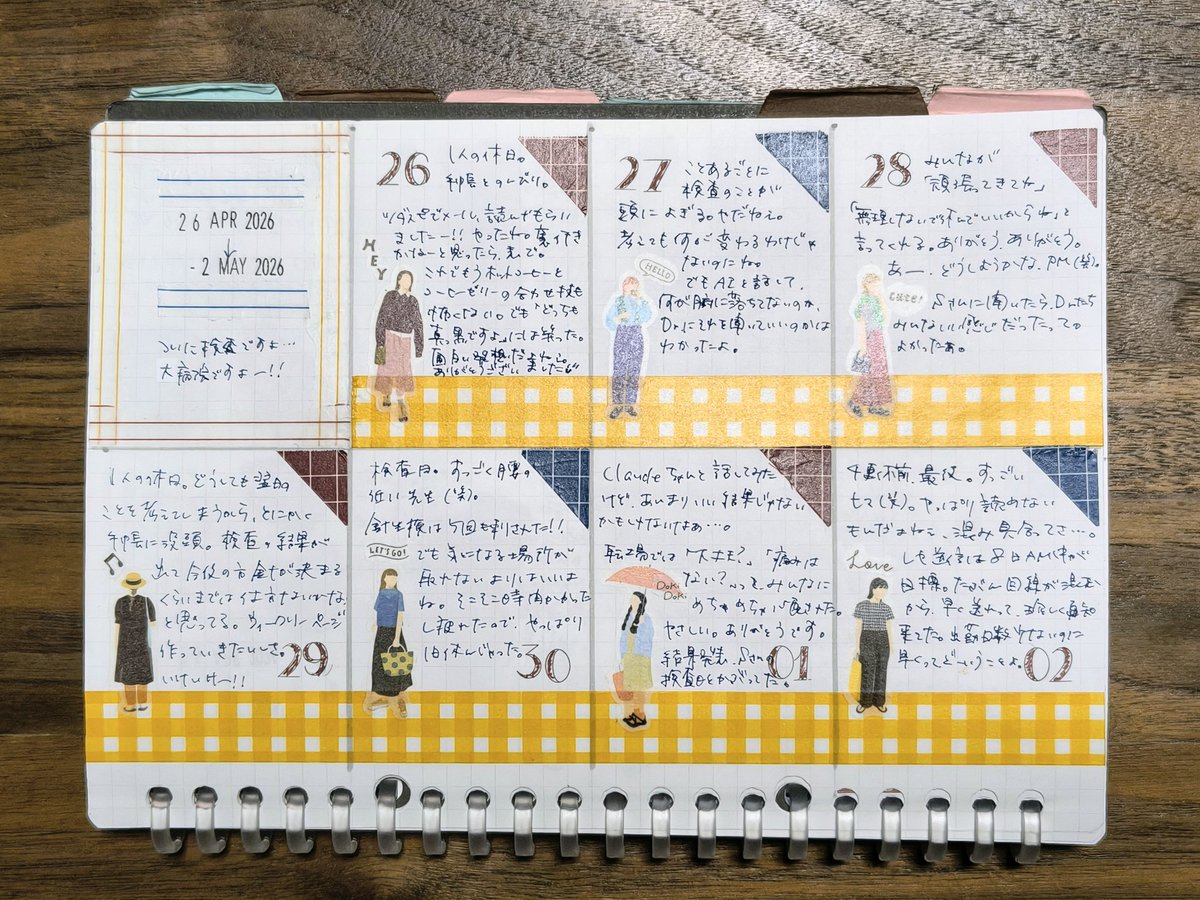 26 APR 2026
- 2 MAY 2026
ついに検査ですよ…
大病院ですよー!!
26
1人の休日。
手帳とのんびり。
ました―!! やったね。
かなーと思ったら、
これでもうホットコーヒーと
コーヒーゼリーの合わせ技も
怖くない。でも"どっちも
真っ黒ですよ"には笑った。
面白い発想だよねぇ。
ありがとうございました
HEY
27
ことあるごとに
検査のことが
頭によぎる。やだねぇ。
考えても何が変わるわけじゃ
ないのにね。
でもAIと話して、
何が腑に落ちてないのか、
Dr.にそれを聞いていいのかは
わかったよ。
HELLO
28
みんなが
「頑張ってきてね」
「無理しないで休んでいいからね」と
言ってくれる。ありがとう、ありがとう。
あー、どうしようかな、PM(笑)。
Sさんに聞いたら、Dr.たち
みんないい感じだったって。
よかったぁ。
1人の休日。どうしても翌日の
ことを考えてしまうから、とにかく
手帳に没頭。検査の結果が
出て今後の方針が決まる
くらいまでは仕方ないかな、
と思ってる。ウィークリーページ
作っていきたいしさ。
いけいけー!!
29
検査日。すっごく腰の
低い先生(笑)。
針生検は今回も刺された!!
でも気になる場所が
取れないよりはいいよ
ね。そこそこ時間かかった
し疲れたので、やっぱり
1日休んじゃった。
LET'S GO!
30
Claudeちゃんと話してみた
けど、あんまりいい結果じゃない
かもしれないなぁ…。
職場では「大丈夫?」「痛みは
ない?」って、みんなに
めちゃめちゃ心配された。
やさしい。ありがとうです。
結果発表、Sさんの
検査日とかぶってた。
DOKi DOKi
01
もんだよねぇ、混み具合ってさ…
Love
目標。たぶん回線が混む
から、早く送れって、珍しく通知
来てた。出勤日数少ないのに
早くってどーいうことよ。
02